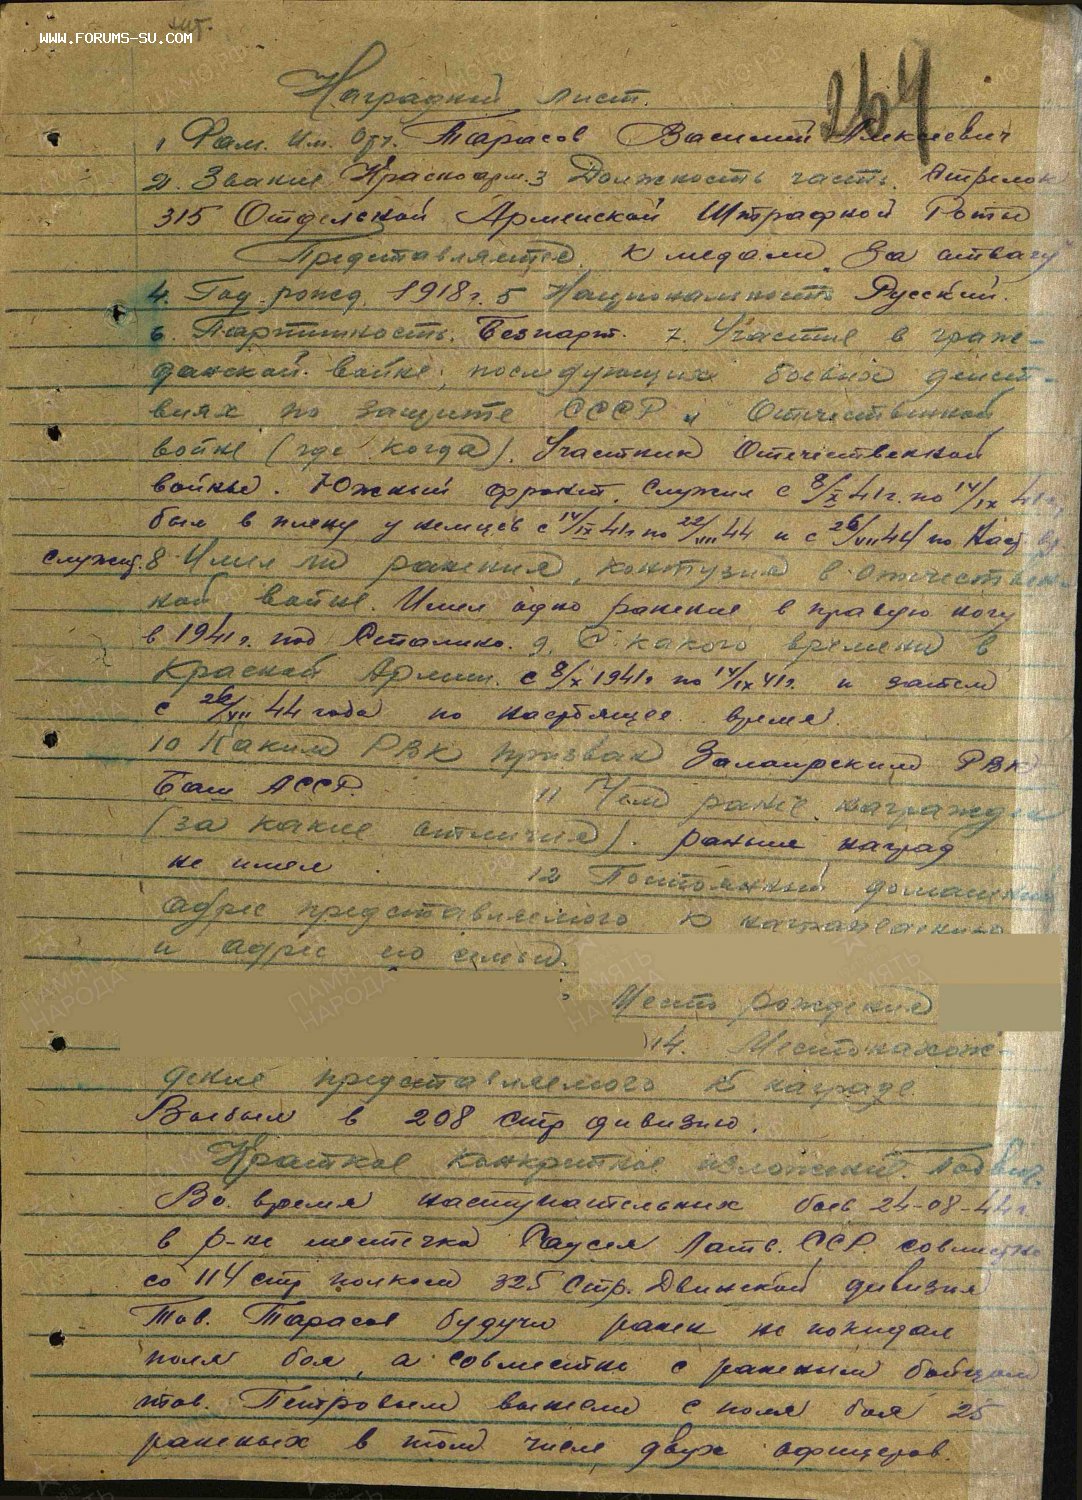 WWW.FORUMS-SU.COM
264
Наградной лист.
1 Фам. Им. Отч. Тарасов Василий Алексеевич
2. Звание Красноарм. 3 Должность часть. Стрелок
315 Отдельской Армейской Штрафной Роты
Представляется к медали За отвагу
4. Год рожд. 1918 г. 5 Национальность Русский.
6. Партийность. Безпарт. 7. Участие в граж-
данской войне, последующих боевых дейст-
виях по защите СССР и Отечественной
войне (где когда). Участник Отечественной
войны. Южный фронт. Служил с 8/X 41г. по 14/IX 41г.
был в плену у немцев с 14/IX 41г по 22/VII 44 и с 26/VII 44 по Наст. вр.
служит. 8 Имел ли ранения, контузия в отечествен-
ной войне. Имел одно ранение в правую ногу
в 1941 г. под Сталино. 9. С какого времени в
Красной Армии. с 8/X 1941г по 14/IX 41г. и затем
с 26/VII 44 года по настоящее время.
10 Каким РВК призван Зилаирским РВК
Баш АССР. 11 Чем ранее награжден
(за какие отличия). раньше наград
не имел. 12 Постоянный домашний
адрес представляемого к награждению
и адрес его семьи.
Место рождения
14. Местонахож-
дение представляемого к награде
Выбыл в 208 стр дивизию.
Краткое конкретное изложение Подвиг.
Во время наступательных боев 24-08-44г.
в р-не местечка Латв. ССР. совместно
со 114 стр полком 325 Стр. Двинской дивизия
Тов. Тарасов будучи ранен не покидал
поля боя, а совместно с раненым бойцом
тов. Петровым вынесли с поля боя 25
раненых в том числе двух офицеров.
ПАМЯТЬ НАРОДА